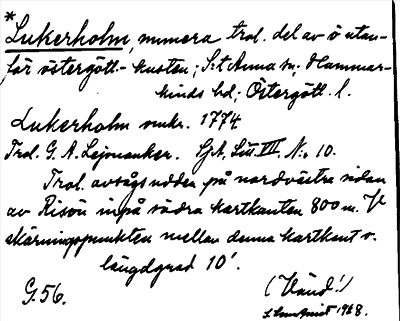 *
Lukerholm, numera trol. del av ö utan-
för östergötl.-kusten; S:t Anna sn; Hammar-
kinds hd; Östergötl. l.
Lukerholm omkr. 1774
Trol. G. A. Lejonanker. Sjk. Litt. VIII. No 10.
Trol. avsågs udden på nordvästra sidan
av Risön inpå södra kartkanten 800 m. V
skärningspunkten mellan denna kartkant o.
längdgrad 10'.
G. 56.
(Vänd!)
1968.